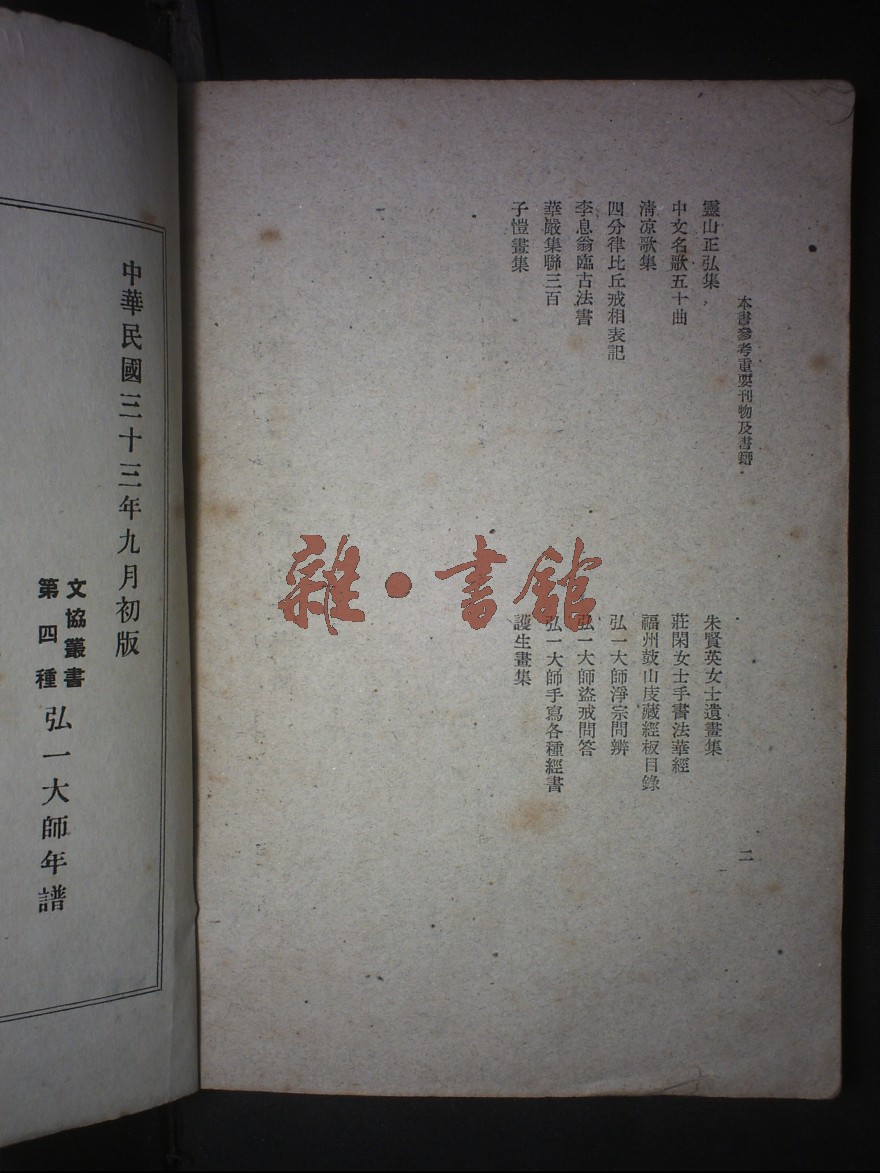 本書參考重要刊物及書籍
靈山正弘集
中文名歌五十曲
清凉歌集
四分律比丘戒相表記
李息翁臨古法書
華嚴集聯三百
子愷畫集
朱賢英女士遺畫集
莊閑女士手書法華經
福州鼓山庋藏經板目錄
弘一大師淨宗問辨
弘一大師盜戒問答
弘一大師手寫各種經書
護生畫集
二
中華民國三十三年九月初版
文協叢書
第四種
弘一大師年譜
雜·書館